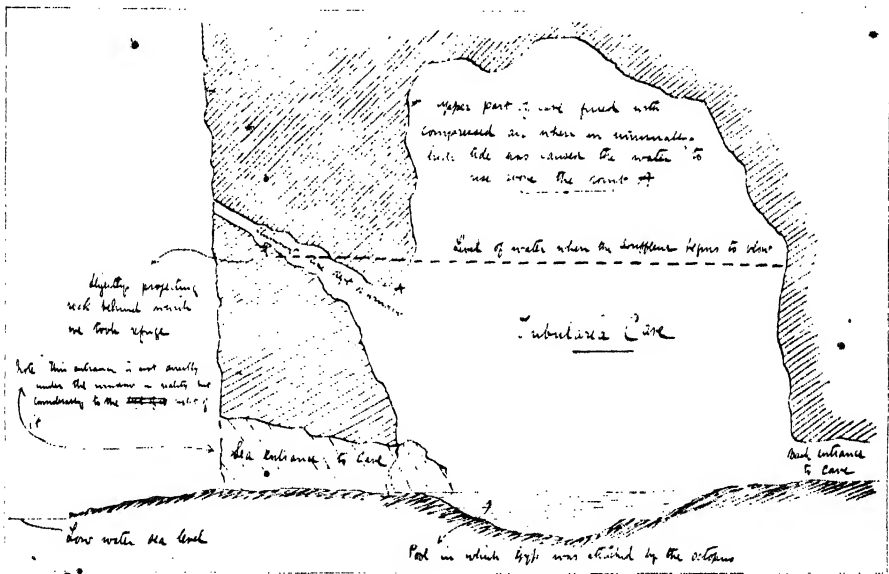 Upper part of cave filled with
compressed air when an unusually
high tide has caused the water to
rise above the point A
Level of water when the Souffleur begins to blow
A
Slightly projecting
rock behind which
we took refuge
Tubularia Cave
Note This entrance is not directly
under the window in reality but
considerably to the right of
it
Sea entrance to Cave
Back entrance
to cave
Low water sea level
Pool in which Gyp was attacked by the octopus